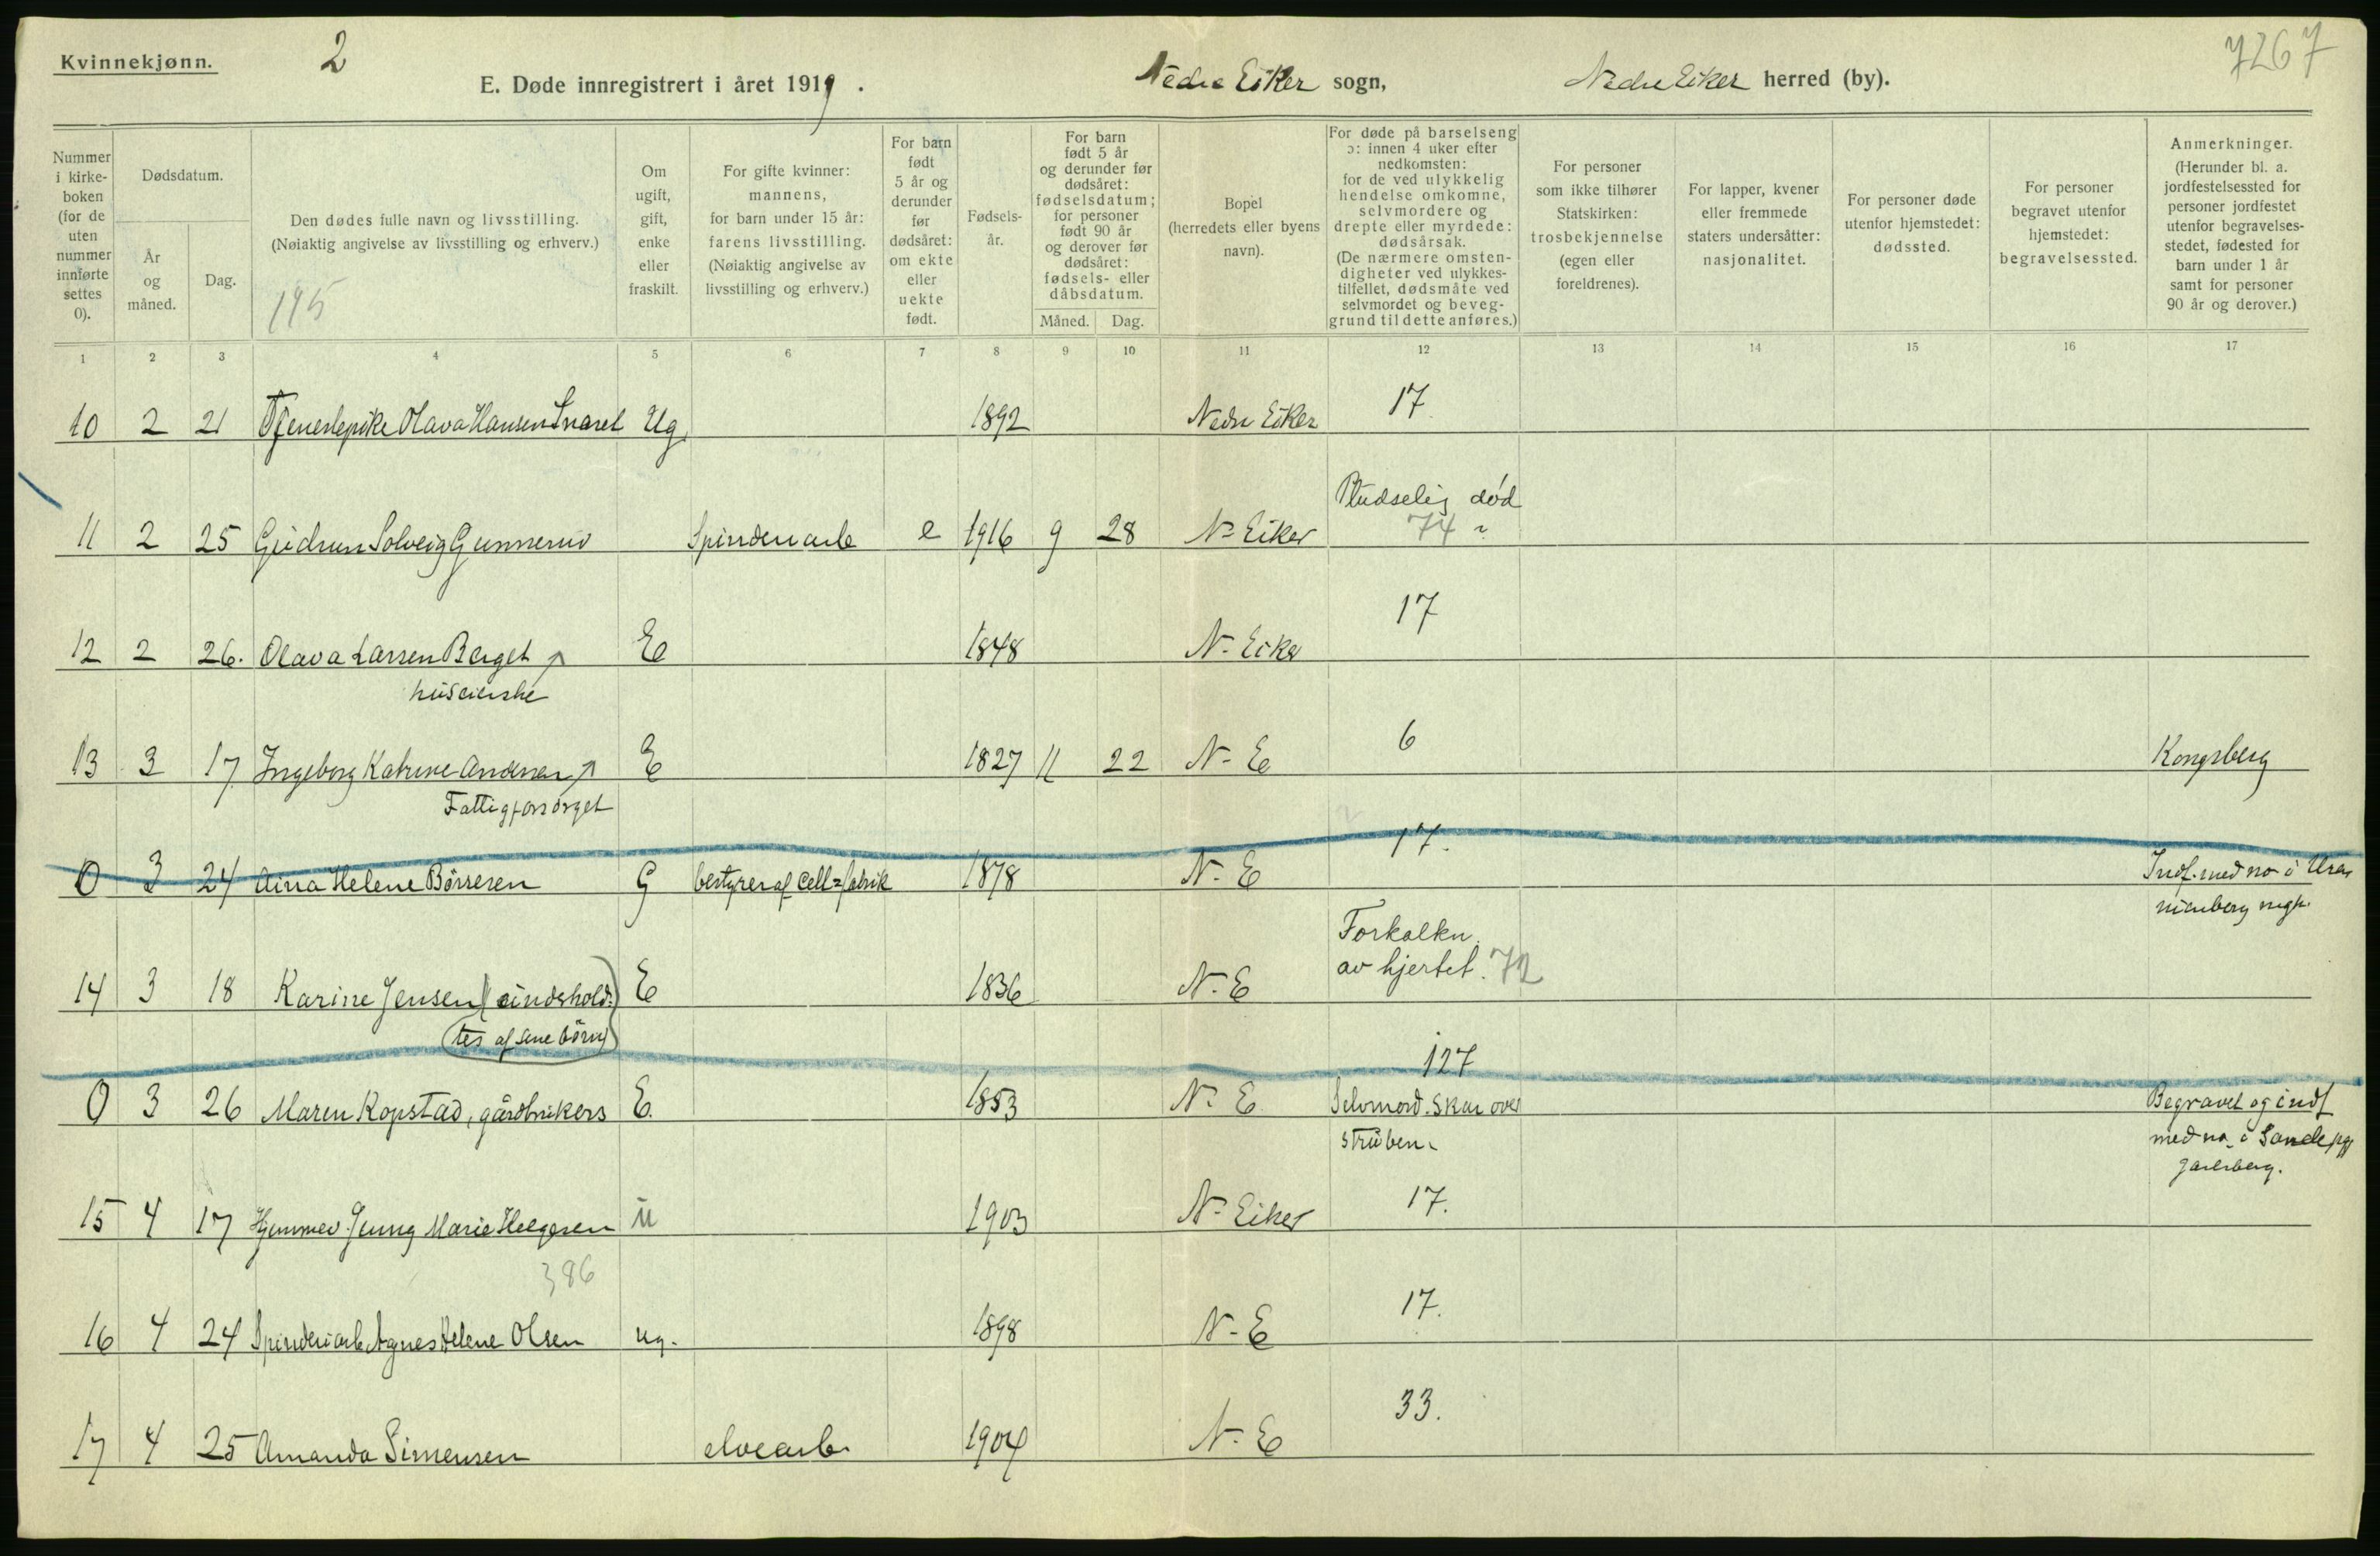 Kvinnekjønn.
2
7267
E. Døde innregistrert i året 1919.
Nedre Eiker sogn,
Nedre Eiker herred (by).
Nummer i kirke- boken (for de uten nummer innførte settes 0).
Dødsdatum.
År og måned.
Dag.
Den dødes fulle navn og livsstilling.
(Nøiaktig angivelse av livsstilling og erhverv.)
195
Om ugift, gift, enke eller fraskilt.
For gifte kvinner: mannens, for barn under 15 år: farens livsstilling. (Nøiaktig angivelse av livsstilling og erhverv.)
For barn født 5 år og derunder før dødsåret: om ekte eller uekte født.
Fødsels- år.
For barn født 5 år og derunder før dødsåret: fødselsdatum; for personer født 90 år og derover før dødsåret: fødsels- eller dåbsdatum.
Måned.
Dag.
Bopel (herredets eller byens navn).
For døde på barselseng ɔ: innen 4 uker efter nedkomsten: for de ved ulykkelig hendelse omkomne, selvmordere og drepte eller myrdede: dødsårsak. (De nærmere omsten- digheter ved ulykkes- tilfellet, dødsmåte ved selvmordet og beveg- grund til dette anføres.)
For personer som ikke tilhører Statskirken: trosbekjennelse (egen eller foreldrenes).
For lapper, kvener eller fremmede staters undersåtter: nasjonalitet.
For personer døde utenfor hjemstedet: dødssted.
For personer begravet utenfor hjemstedet: begravelsessted.
Anmerkninger. (Herunder bl. a. jordfestelsessted for personer jordfestet utenfor begravelses- stedet, fødested for barn under 1 år samt for personer 90 år og derover.)
1 2 3 4 5 6 7 8 9 10 11 12 13 14 15 16 17
10 2 21 Tjenestepike Olava Hansen Svaret Ug. 1892 Nedre Eiker 17.
11 2 25 Gudrun Solveig Gunnerud Spinderiarb e 1916 9 28 N. Eiker Pludselig død
74 ?
12 2 26. Olava Larsen Berget E 1848 N. Eiker 17
huseierske
13 3 17 Ingeborg Katrine Andersen E 1827 11 22 N. E 6 Kongsberg
Fattigforsørget
0 3 24 Aina Helene Börresen G bestyrer af Cell=fabrik 1878 N. E 17. Indf. med no i Ura-
nienborg megh.
14 3 18 Karine Jensen (underhold: E 1836 N. E Forkalkn. av hjertet. 72
tes af sine börn)
0 3 26 Maren Kopstad, gårdbrukers E. 1853 N. E 127 Selvmord. Skar over
struben.
Begravet og indf
med no. i Sande pgj
Jarlsberg.
15 4 17 Hjemmev. Jenny Marie Helgesen u 1903 N. Eiker 17.
386
16 4 24 Spinderiarb Agnes Helene Olsen ug. 1898 N. E 17.
17 4 25 Amanda Simensen elvearb. 1904 N. E 33.